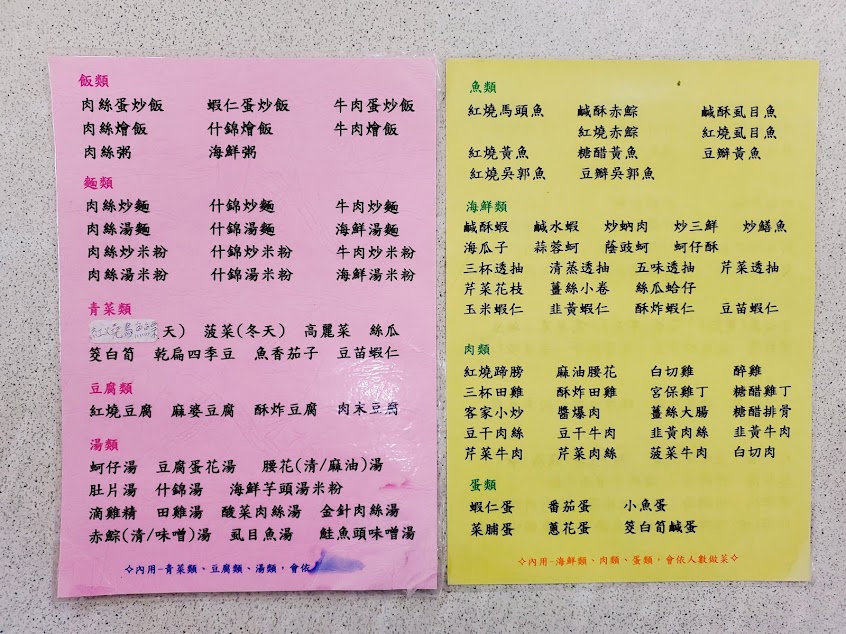 飯類
肉絲蛋炒飯 蝦仁蛋炒飯 牛肉蛋炒飯
肉絲燴飯 什錦燴飯 牛肉燴飯
肉絲粥 海鮮粥
麵類
肉絲炒麵 什錦炒麵 牛肉炒麵
肉絲湯麵 什錦湯麵 海鮮湯麵
肉絲炒米粉 什錦炒米粉 牛肉炒米粉
肉絲湯米粉 什錦湯米粉 海鮮湯米粉
青菜類
天) 菠菜(冬天) 高麗菜 絲瓜
筊白筍 乾扁四季豆 魚香茄子 豆苗蝦仁
豆腐類
紅燒豆腐 麻婆豆腐 酥炸豆腐 肉末豆腐
湯類
蚵仔湯 豆腐蛋花湯 腰花(清/麻油)湯
肚片湯 什錦湯 海鮮芋頭湯米粉
滴雞精 田雞湯 酸菜肉絲湯 金針肉絲湯
赤鯮(清/味噌)湯 虱目魚湯 鮭魚頭味噌湯
✧內用-青菜類、豆腐類、湯類，會依
魚類
紅燒馬頭魚 鹹酥赤鯮 鹹酥虱目魚
紅燒赤鯮 紅燒虱目魚
紅燒黃魚 糖醋黃魚 豆瓣黃魚
紅燒吳郭魚 豆瓣吳郭魚
海鮮類
鹹酥蝦 鹹水蝦 炒蚋肉 炒三鮮 炒鱔魚
海瓜子 蒜蓉蚵 蔭豉蚵 蚵仔酥
三杯透抽 清蒸透抽 五味透抽 芹菜透抽
芹菜花枝 薑絲小卷 絲瓜蛤仔
玉米蝦仁 韭黃蝦仁 酥炸蝦仁 豆苗蝦仁
肉類
紅燒蹄膀 麻油腰花 白切雞 醉雞
三杯田雞 酥炸田雞 宮保雞丁 糖醋雞丁
客家小炒 醬爆肉 薑絲大腸 糖醋排骨
豆干肉絲 豆干牛肉 韭黃肉絲 韭黃牛肉
芹菜牛肉 芹菜肉絲 菠菜牛肉 白切肉
蛋類
蝦仁蛋 番茄蛋 小魚蛋
菜脯蛋 蔥花蛋 筊白筍鹹蛋
✧內用-海鮮類、肉類、蛋類，會依人數做菜✧